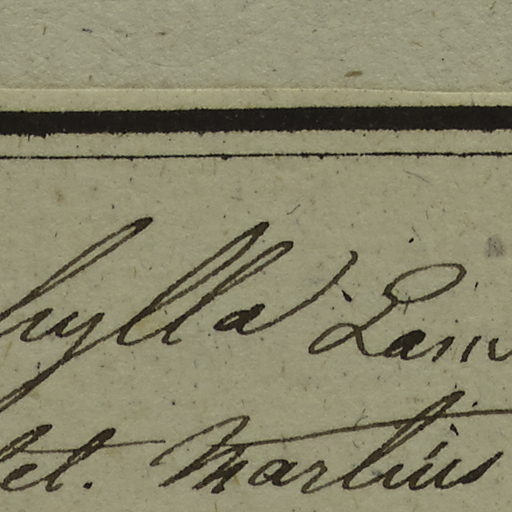 hylla Lam
tet. Martius